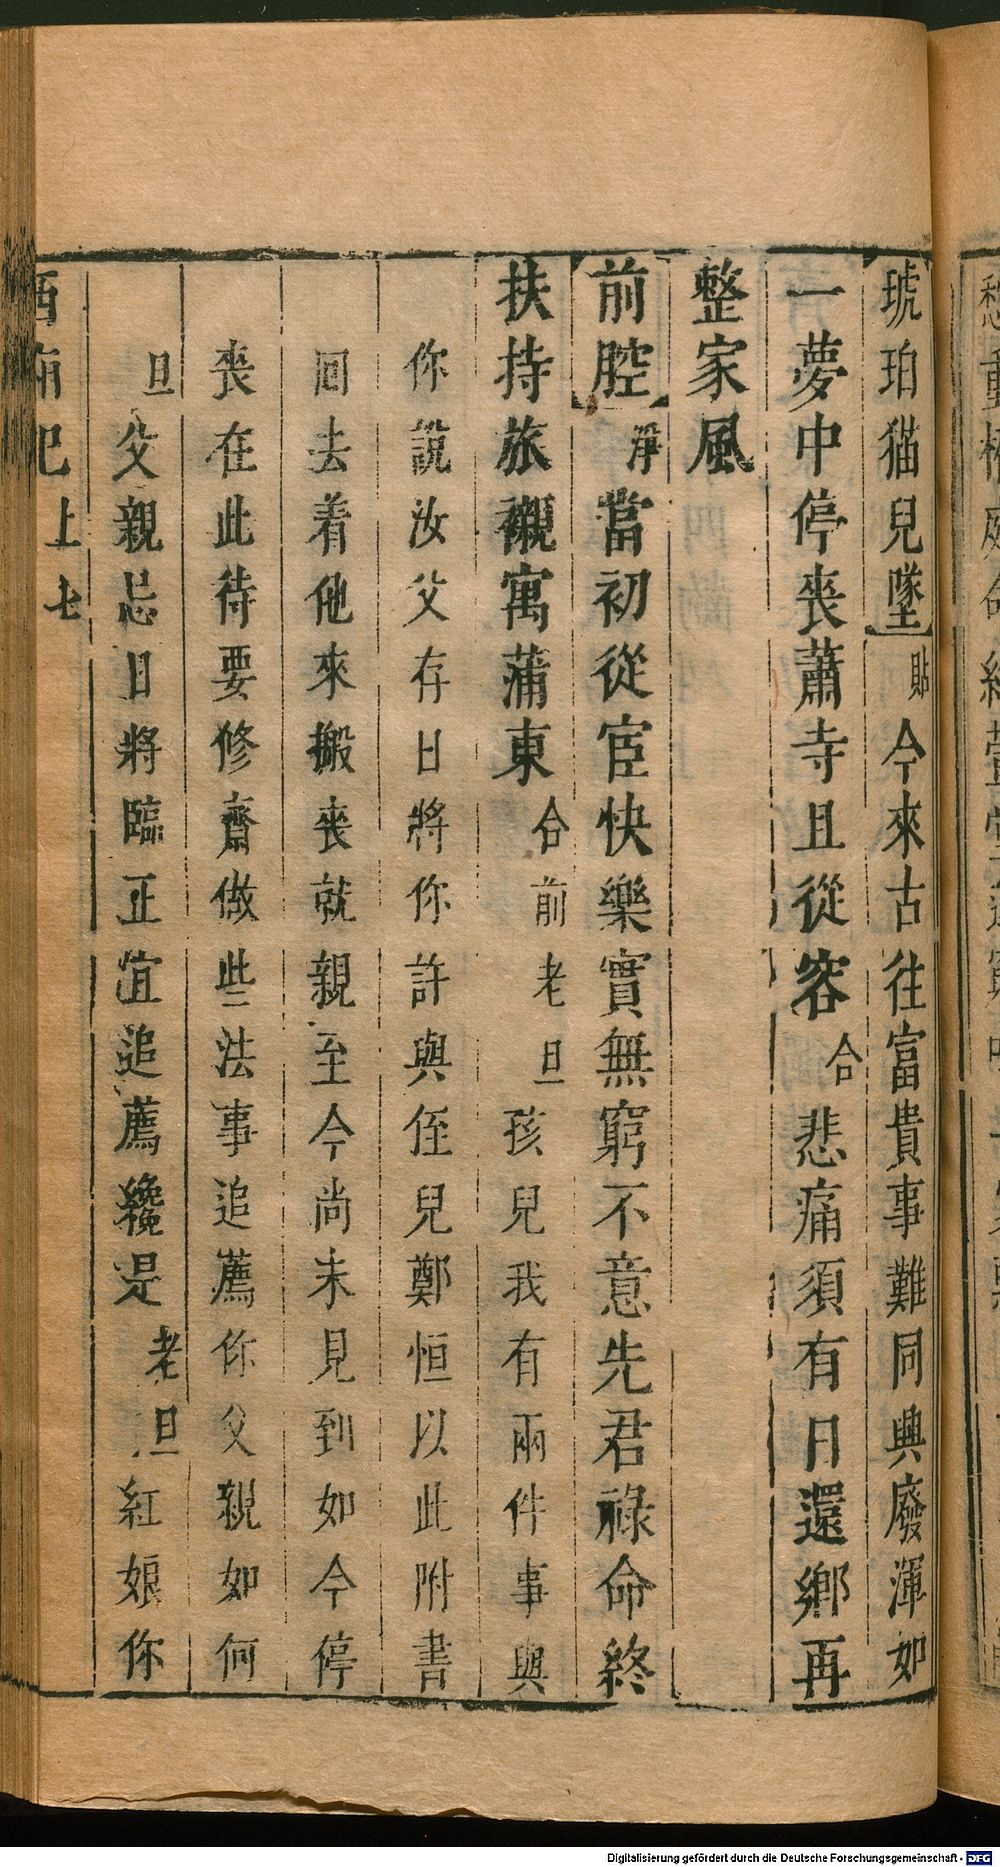 琥珀猫兒墜 貼 今來古往富貴事難同興廢渾如
一夢中停喪蕭寺且從容 合 悲痛須有日還鄉再
整家風
前腔 淨 當初從宦快樂實無窮不意先君祿命終
扶持旅櫬寓蒲東 合前 老旦 孩兒我有兩件事與
你說汝父存日將你許與侄兒鄭恒以此附書
回去着他來搬喪就親至今尚未見到如今停
喪在此待要修齋做些法事追薦你父親如何
旦 父親忌日將臨正宜追薦纔是 老旦 紅娘你
西廂記 上 七
Digitalisierung gefördert durch die Deutsche Forschungsgemeinschaft - DFG